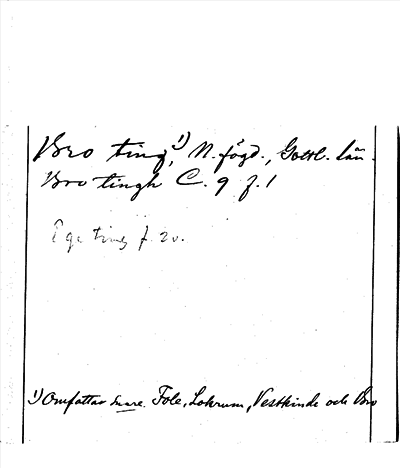 Bro ting,¹⁾ N. fögd., Gottl. län.
Bro tingh C. 9 f. 1
Ege ting f. 20.
¹⁾ Omfattar snare. Fole, Lokrum, Vestkinde och Bro